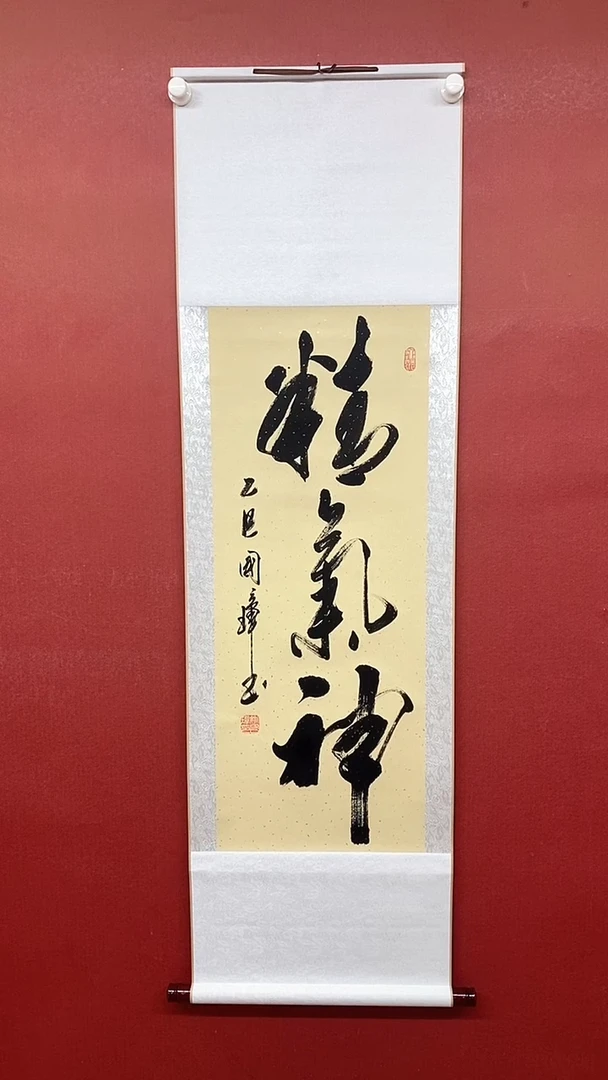 精氣神
乙巳國璋书